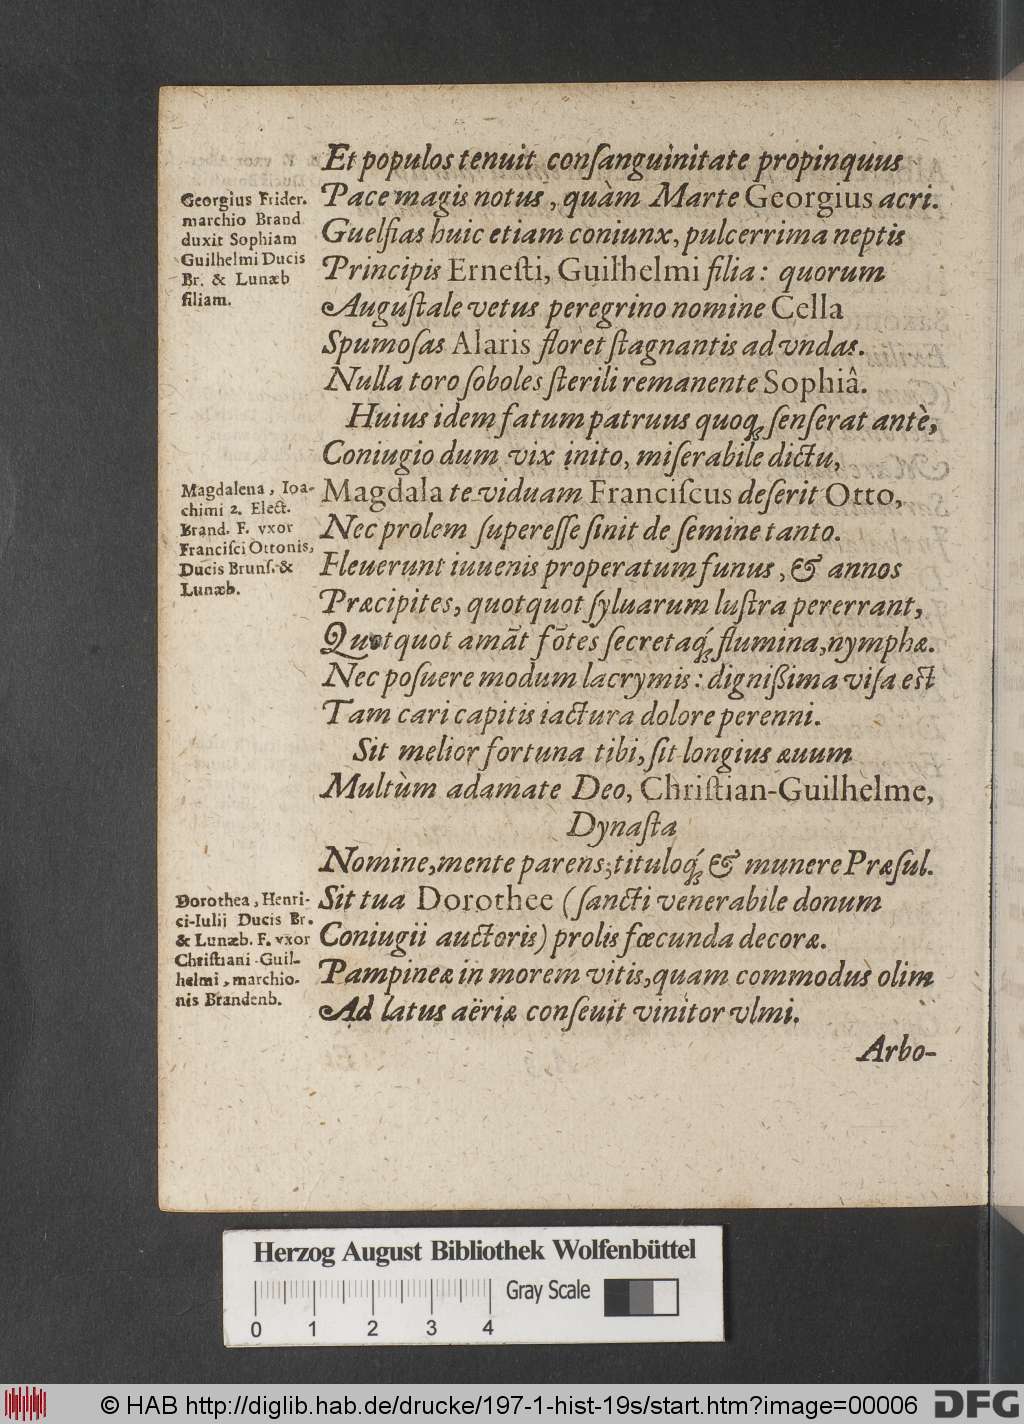 Et populos tenuit conſanguinitate propinquus
Georgius Frider.
marchio Brand
duxit Sophiam
Guilhelmi Ducis
Br. & Lunæb
filiam.
Pace magis notus, quàm Marte Georgius acri.
Guelfias huic etiam coniunx, pulcerrima neptis
Principis Erneſti, Guilhelmi filia: quorum
Auguſtale vetus peregrino nomine Cella
Spumoſas Alaris floret ſtagnantis ad vndas.
Nulla toro ſoboles ſterili remanente Sophiâ.
Huius idem fatum patruus quoq́ꝫ ſenſerat antè,
Coniugio dum vix inito, miſerabile dictu,
Magdalena, Ioa-
chimi 2. Elect.
Brand. F. vxor
Franciſci Ottonis,
Ducis Brunſ. &
Lunæb.
Magdala te viduam Franciſcus deſerit Otto,
Nec prolem ſupereſſe ſinit de ſemine tanto.
Fleuerunt iuuenis properatum funus, & annos
Præcipites, quotquot ſyluarum luſtra pererrant,
Quotquot amāt fōtes ſecretaq́ꝫ flumina, nymphæ.
Nec poſuere modum lacrymis: digniſſima viſa eſt
Tam cari capitis iactura dolore perenni.
Sit melior fortuna tibi, ſit longius æuum
Multùm adamate Deo, Chriſtian-Guilhelme,
Dynaſta
Nomine, mente parens; tituloq́ꝫ & munere Præſul.
Dorothea, Henri-
ci-Iulij Ducis Br.
& Lunæb. F. vxor
Chriſtiani-Guil-
helmi, marchio-
nis Brandenb.
Sit tua Dorothee (ſancti venerabile donum
Coniugii auctoris) prolis fœcunda decoræ.
Pampineæ in morem vitis, quam commodus olim
Ad latus aëriæ conſeuit vinitor vlmi.
Arbo-
Herzog August Bibliothek Wolfenbüttel
Gray Scale
0 1 2 3 4
© HAB http://diglib.hab.de/drucke/197-1-hist-19s/start.htm?image=00006
DFG